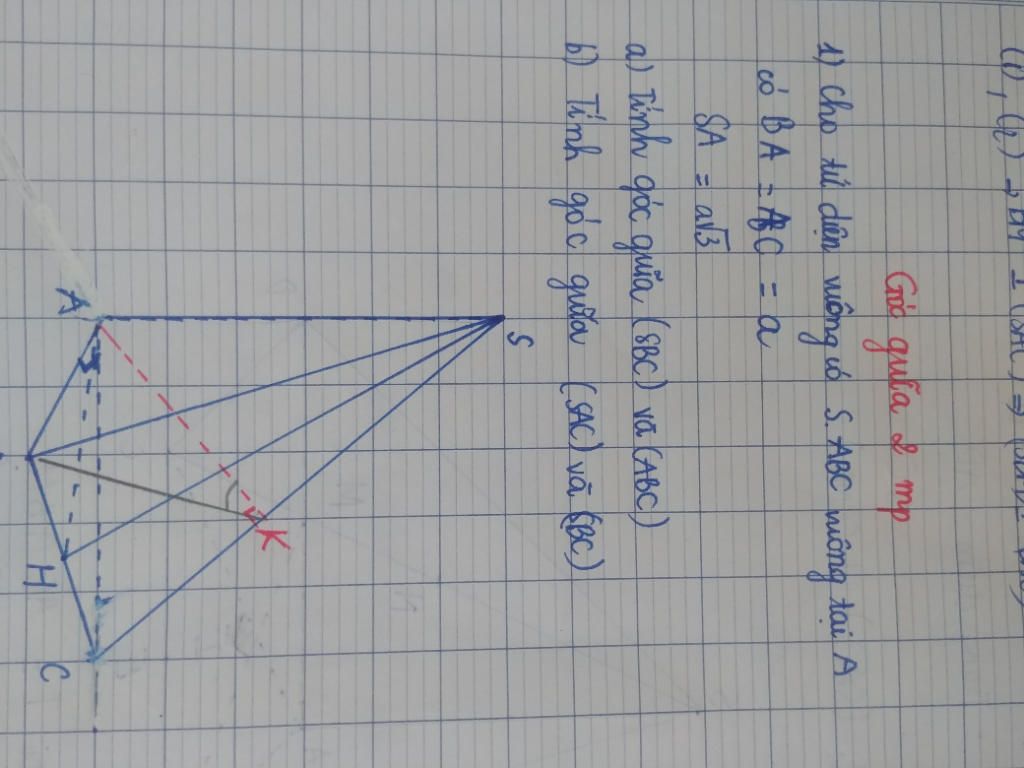 Góc giữa 2 mp
1) Cho tứ diện vuông ở S.ABC vuông tại A
có BA = AC = a
SA = a√3
a) Tính góc giữa (SBC) và (ABC)
b) Tính góc giữa (SAC) và (SBC)
S
K
A
H
C